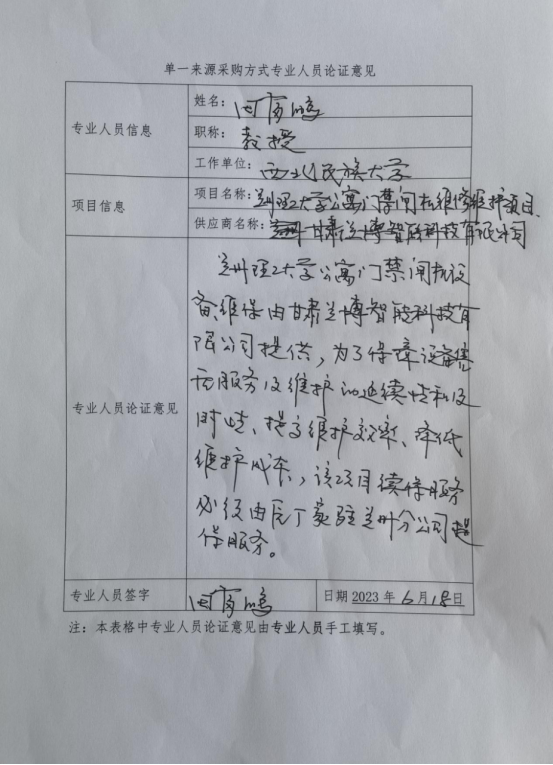 单一来源采购方式专业人员论证意见
专业人员信息
姓名：田富鹏
职称：教授
工作单位：西北民族大学
项目信息
项目名称：兰州理工大学公寓门禁闸机维修维护项目
供应商名称：甘肃兰博智能科技有限公司
专业人员论证意见
兰州理工大学公寓门禁闸机设
备维保由甘肃兰博智能科技有
限公司提供，为了保障设备售
后服务及维护的延续性和及
时性、提高维护效率、降低
维护成本，该项目续保服务
必须由原厂家驻兰州分公司提
供服务。
专业人员签字
田富鹏
日期 2023 年 6 月 18 日
注：本表格中专业人员论证意见由专业人员手工填写。